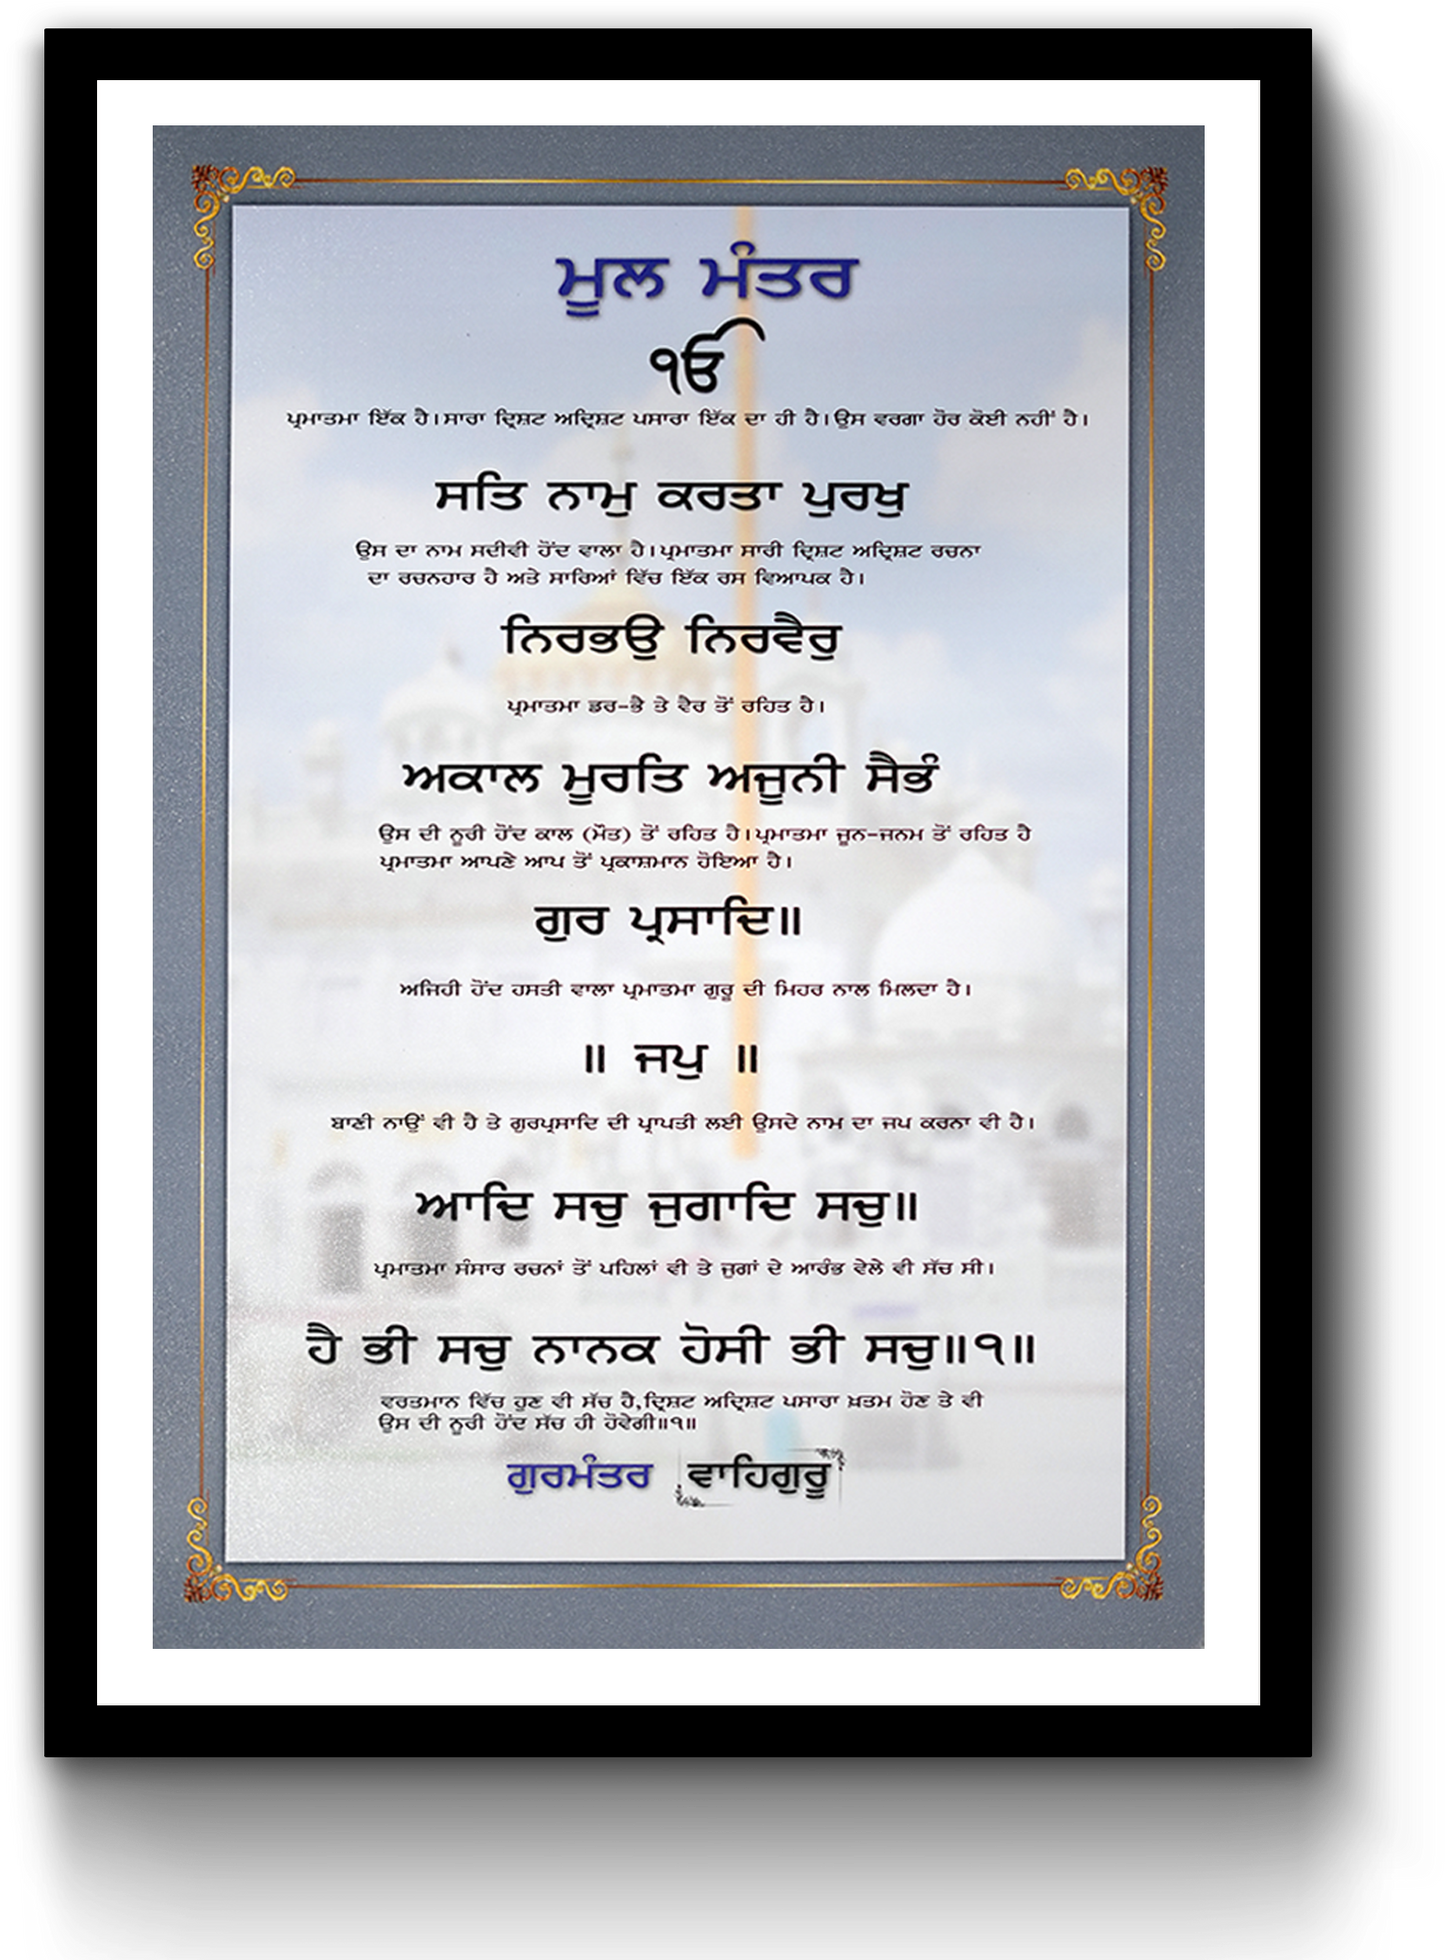 ਮੂਲ ਮੰਤਰ
ੴ
ਪ੍ਰਮਾਤਮਾ ਇੱਕ ਹੈ।ਸਾਰਾ ਦ੍ਰਿਸ਼ਟ ਅਦ੍ਰਿਸ਼ਟ ਪਸਾਰਾ ਇੱਕ ਦਾ ਹੀ ਹੈ।ਉਸ ਵਰਗਾ ਹੋਰ ਕੋਈ ਨਹੀਂ ਹੈ।
ਸਤਿ ਨਾਮੁ ਕਰਤਾ ਪੁਰਖੁ
ਉਸ ਦਾ ਨਾਮ ਸਦੀਵੀ ਹੋਂਦ ਵਾਲਾ ਹੈ।ਪ੍ਰਮਾਤਮਾ ਸਾਰੀ ਦ੍ਰਿਸ਼ਟ ਅਦ੍ਰਿਸ਼ਟ ਰਚਨਾ
ਦਾ ਰਚਨਹਾਰ ਹੈ ਅਤੇ ਸਾਰਿਆਂ ਵਿੱਚ ਇੱਕ ਰਸ ਵਿਆਪਕ ਹੈ।
ਨਿਰਭਉ ਨਿਰਵੈਰੁ
ਪ੍ਰਮਾਤਮਾ ਡਰ-ਭੈ ਤੇ ਵੈਰ ਤੋਂ ਰਹਿਤ ਹੈ।
ਅਕਾਲ ਮੂਰਤਿ ਅਜੂਨੀ ਸੈਭੰ
ਉਸ ਦੀ ਨੂਰੀ ਹੋਂਦ ਕਾਲ (ਮੌਤ) ਤੋਂ ਰਹਿਤ ਹੈ।ਪ੍ਰਮਾਤਮਾ ਜੂਨ-ਜਨਮ ਤੋਂ ਰਹਿਤ ਹੈ
ਪ੍ਰਮਾਤਮਾ ਆਪਣੇ ਆਪ ਤੋਂ ਪ੍ਰਕਾਸ਼ਮਾਨ ਹੋਇਆ ਹੈ।
ਗੁਰ ਪ੍ਰਸਾਦਿ॥
ਅਜਿਹੀ ਹੋਂਦ ਹਸਤੀ ਵਾਲਾ ਪ੍ਰਮਾਤਮਾ ਗੁਰੂ ਦੀ ਮਿਹਰ ਨਾਲ ਮਿਲਦਾ ਹੈ।
॥ ਜਪੁ ॥
ਬਾਣੀ ਨਾਉਂ ਵੀ ਹੈ ਤੇ ਗੁਰਪ੍ਰਸਾਦਿ ਦੀ ਪ੍ਰਾਪਤੀ ਲਈ ਉਸਦੇ ਨਾਮ ਦਾ ਜਪ ਕਰਨਾ ਵੀ ਹੈ।
ਆਦਿ ਸਚੁ ਜੁਗਾਦਿ ਸਚੁ॥
ਪ੍ਰਮਾਤਮਾ ਸੰਸਾਰ ਰਚਨਾਂ ਤੋਂ ਪਹਿਲਾਂ ਵੀ ਤੇ ਜੁਗਾਂ ਦੇ ਆਰੰਭ ਵੇਲੇ ਵੀ ਸੱਚ ਸੀ।
ਹੈ ਭੀ ਸਚੁ ਨਾਨਕ ਹੋਸੀ ਭੀ ਸਚੁ॥੧॥
ਵਰਤਮਾਨ ਵਿੱਚ ਹੁਣ ਵੀ ਸੱਚ ਹੈ,ਦ੍ਰਿਸ਼ਟ ਅਦ੍ਰਿਸ਼ਟ ਪਸਾਰਾ ਖ਼ਤਮ ਹੋਣ ਤੇ ਵੀ
ਉਸ ਦੀ ਨੂਰੀ ਹੋਂਦ ਸੱਚ ਹੀ ਹੋਵੇਗੀ॥੧॥
ਗੁਰਮੰਤਰ ਵਾਹਿਗੁਰੂ